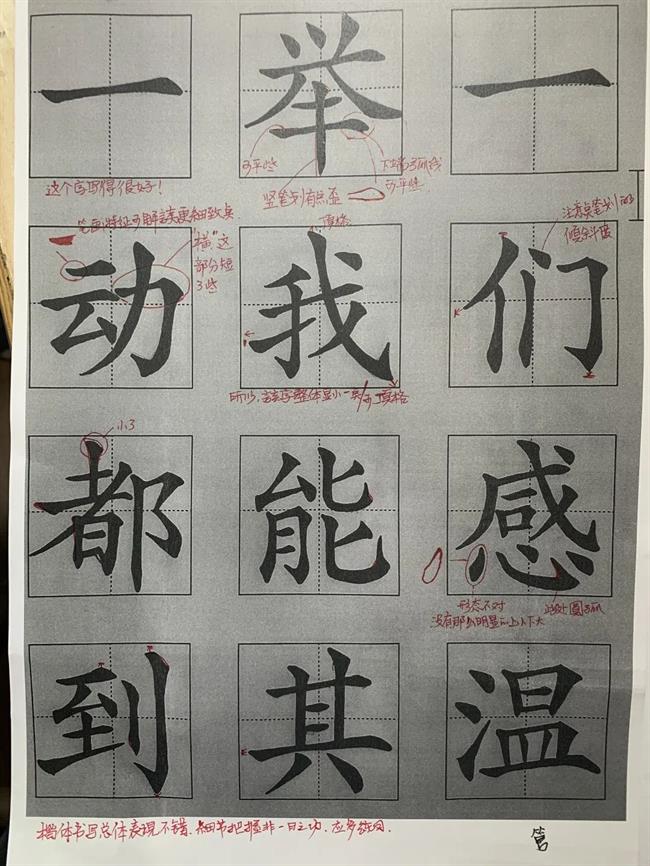 一 举 一
可平些
下端弧线
可平些
竖笔划有点歪
这个字写得很好！
笔画特征可
更细致点
顶格
注意点笔划的
倾斜斗度
"横"这
部分短
了些
动 我 们
所以，该字整体显小一点
可顶格
小了
都 能 感
形态不对
没有那么明显的上小下大
此处圆弧
到 其 温
楷体书写总体表现不错，细节把握非一日之功，应多练习．